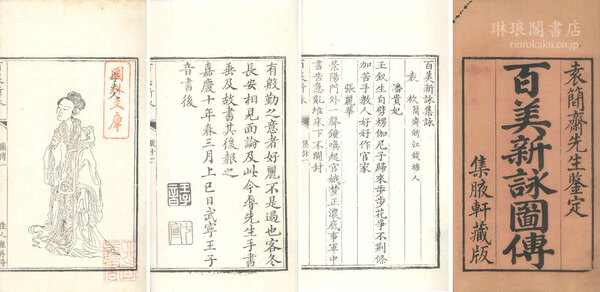 琳琅閣書店
rinrokaku.co.jp
袁簡齋先生鑒定
百美新詠圖傳
集腋軒藏版
百美新詠集詠
袁枚 簡齋浙江錢塘人
潘貴妃
王奴生自劈楞伽尼子歸來步步花爭不荊條
加苦手教人好好作官家
張麗華
景陽門外一聲鐘喚起官娥夢正濃底事軍中
書告急亂堆床下不開封
集詠一
有殷勤之意者好麗不是過也客冬
長安相見面論及此今辱先生手書
垂及故書其後報之
嘉慶十年春三月上巳日武寧王子
音書後
文庫
圖傳一